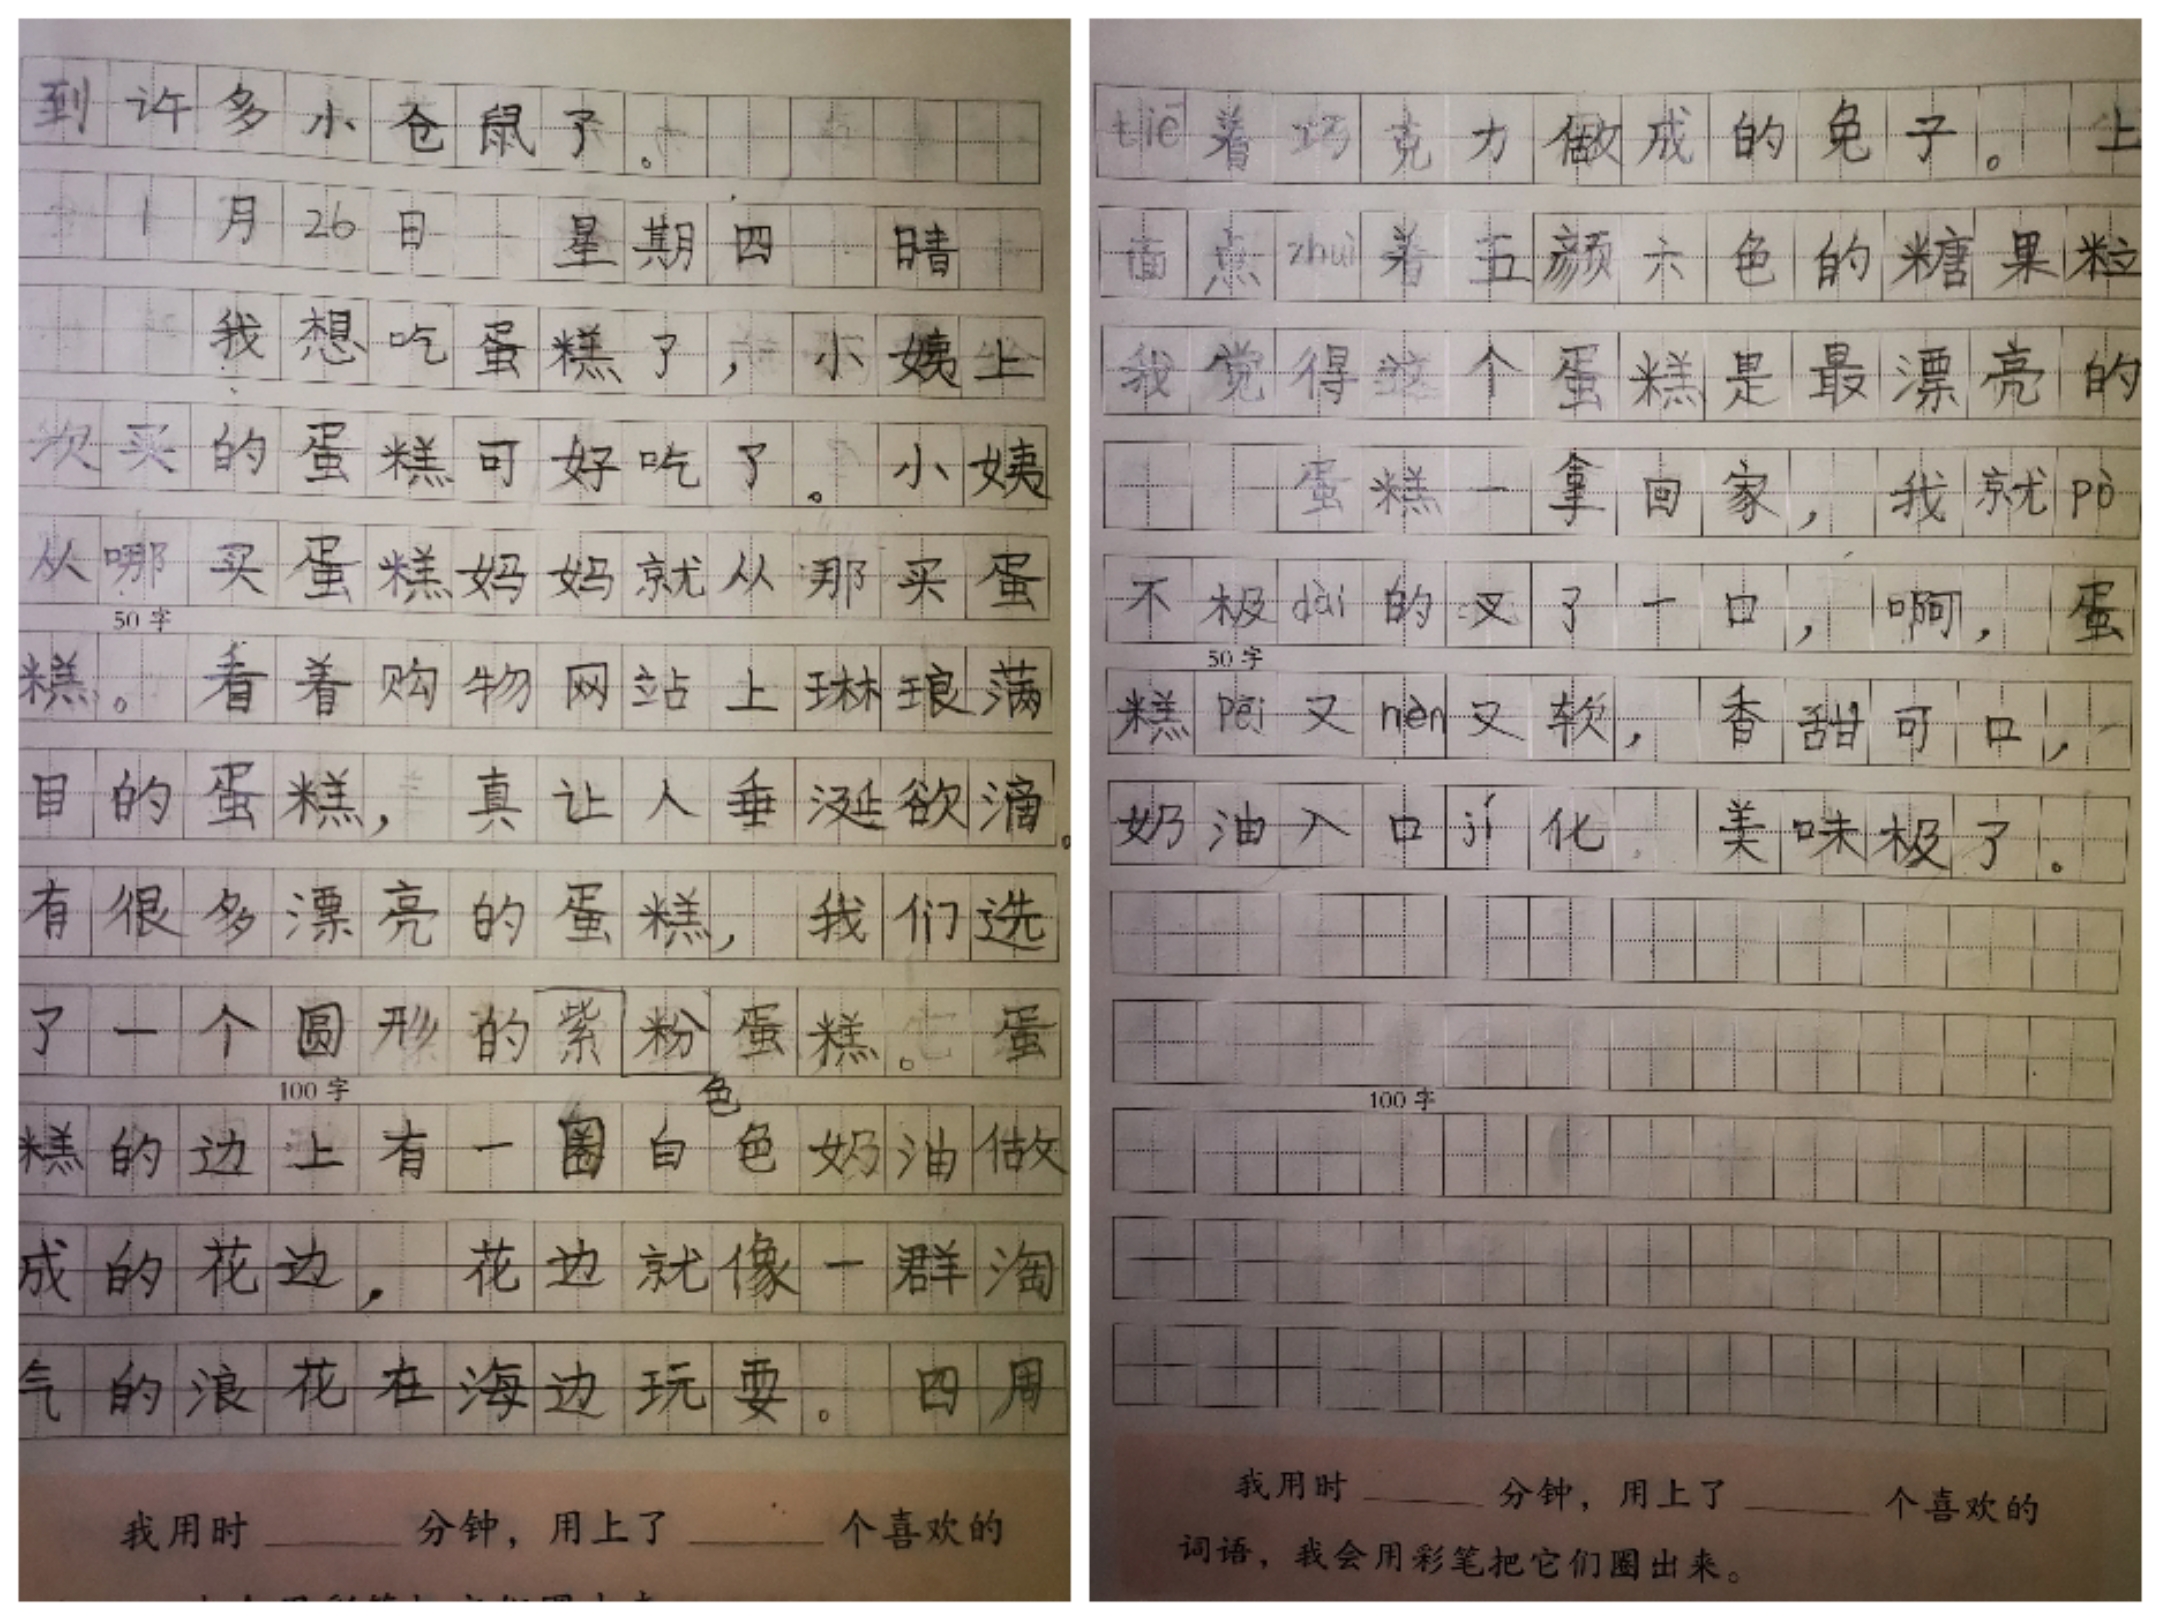 到许多小仓鼠了。
1月26日 星期四 晴
我想吃蛋糕了，小姨上
次买的蛋糕可好吃了。小姨
从哪买蛋糕妈妈就从那买蛋
50字
糕。看着购物网站上琳琅满
目的蛋糕，真让人垂涎欲滴。
有很多漂亮的蛋糕，我们选
了一个圆形的紫粉蛋糕。蛋
100字
色
糕的边上有一圈白色奶油做
成的花边，花边就像一群淘
气的浪花在海边玩耍。四周
我用时 分钟，用上了 个喜欢的
tiē着巧克力做成的兔子。上
面点zhuì着五颜六色的糖果粒
我觉得这个蛋糕是最漂亮的
蛋糕一拿回家，我就pò
不极dài的叉了一口，啊，蛋
50字
糕pēi又nèn又软，香甜可口，
奶油入口jí化 美味极了。
100字
我用时 分钟，用上了 个喜欢的
词语，我会用彩笔把它们圈出来。